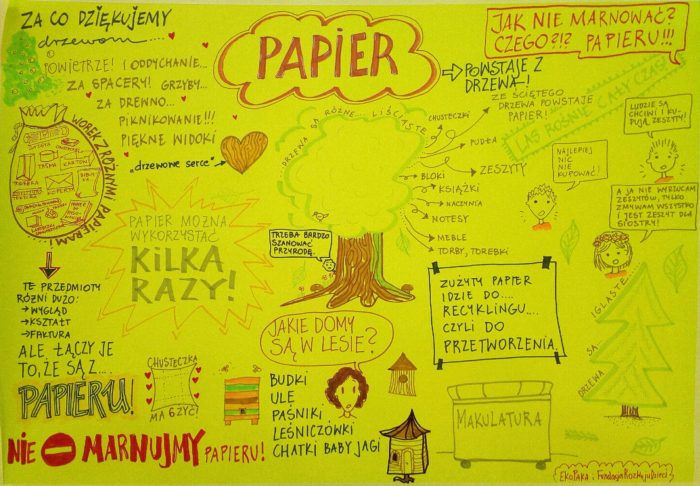 ZA CO DZIĘKUJEMY
drzewom...
POWIETRZE! I ODDYCHANIE...
ZA SPACERY! GRZYBY...
ZA DREWNO...
PIKNIKOWANIE!!!
PIĘKNE WIDOKI
"drzewone serce"
PAPIER
POWSTAJE Z
DRZEWA!
ZE ŚCIĘTEGO
DRZEWA POWSTAJE
PAPIER!
JAK NIE MARNOWAĆ?
CZEGO?!? PAPIERU!!!
LAS ROŚNIE CAŁY CZAS!
LUDZIE SĄ
CHCIWI I KU-
PUJĄ ZESZYTY!
NAJLEPIEJ
NIC
NIE
KUPOWAĆ!
A JA NIE WYRZUCAM
ZESZYTÓW, TYLKO
ZMYWAM WSZYSTKO
I JEST ZESZYT DLA
SIOSTRY!
DRZEWA SĄ RÓŻNE... LIŚCIASTE
CHUSTECZKI
PUDŁA
ZESZYTY
BLOKI
KSIĄŻKI
NACZYNIA
NOTESY
MEBLE
TORBY, TOREBKI
TRZEBA BARDZO
SZANOWAĆ
PRZYRODĘ.
WOREK Z RÓŻNYMI PAPIERAMI
TAŚMA
KARTON
TOREBKA
TE PRZEDMIOTY
RÓŻNI DUŻO:
WYGLĄD
KSZTAŁT
FAKTURA
ALE ŁĄCZY JE
TO, ŻE SĄ Z...
PAPIERU!
PAPIER MOŻNA
WYKORZYSTAĆ
KILKA
RAZY!
CHUSTECZKA
MA 6 ŻYĆ!
NIE MARNUJMY PAPIERU!
JAKIE DOMY
SĄ W LESIE?
BUDKI
ULE
PAŚNIKI
LEŚNICZÓWKI
CHATKI BABY JAGI
ZUŻYTY PAPIER
IDZIE DO....
RECYKLINGU....
CZYLI DO
PRZETWORZENIA.
MAKULATURA
DRZEWA SĄ IGLASTE
EKOPAKA : FundacjaRozwojuDzieci